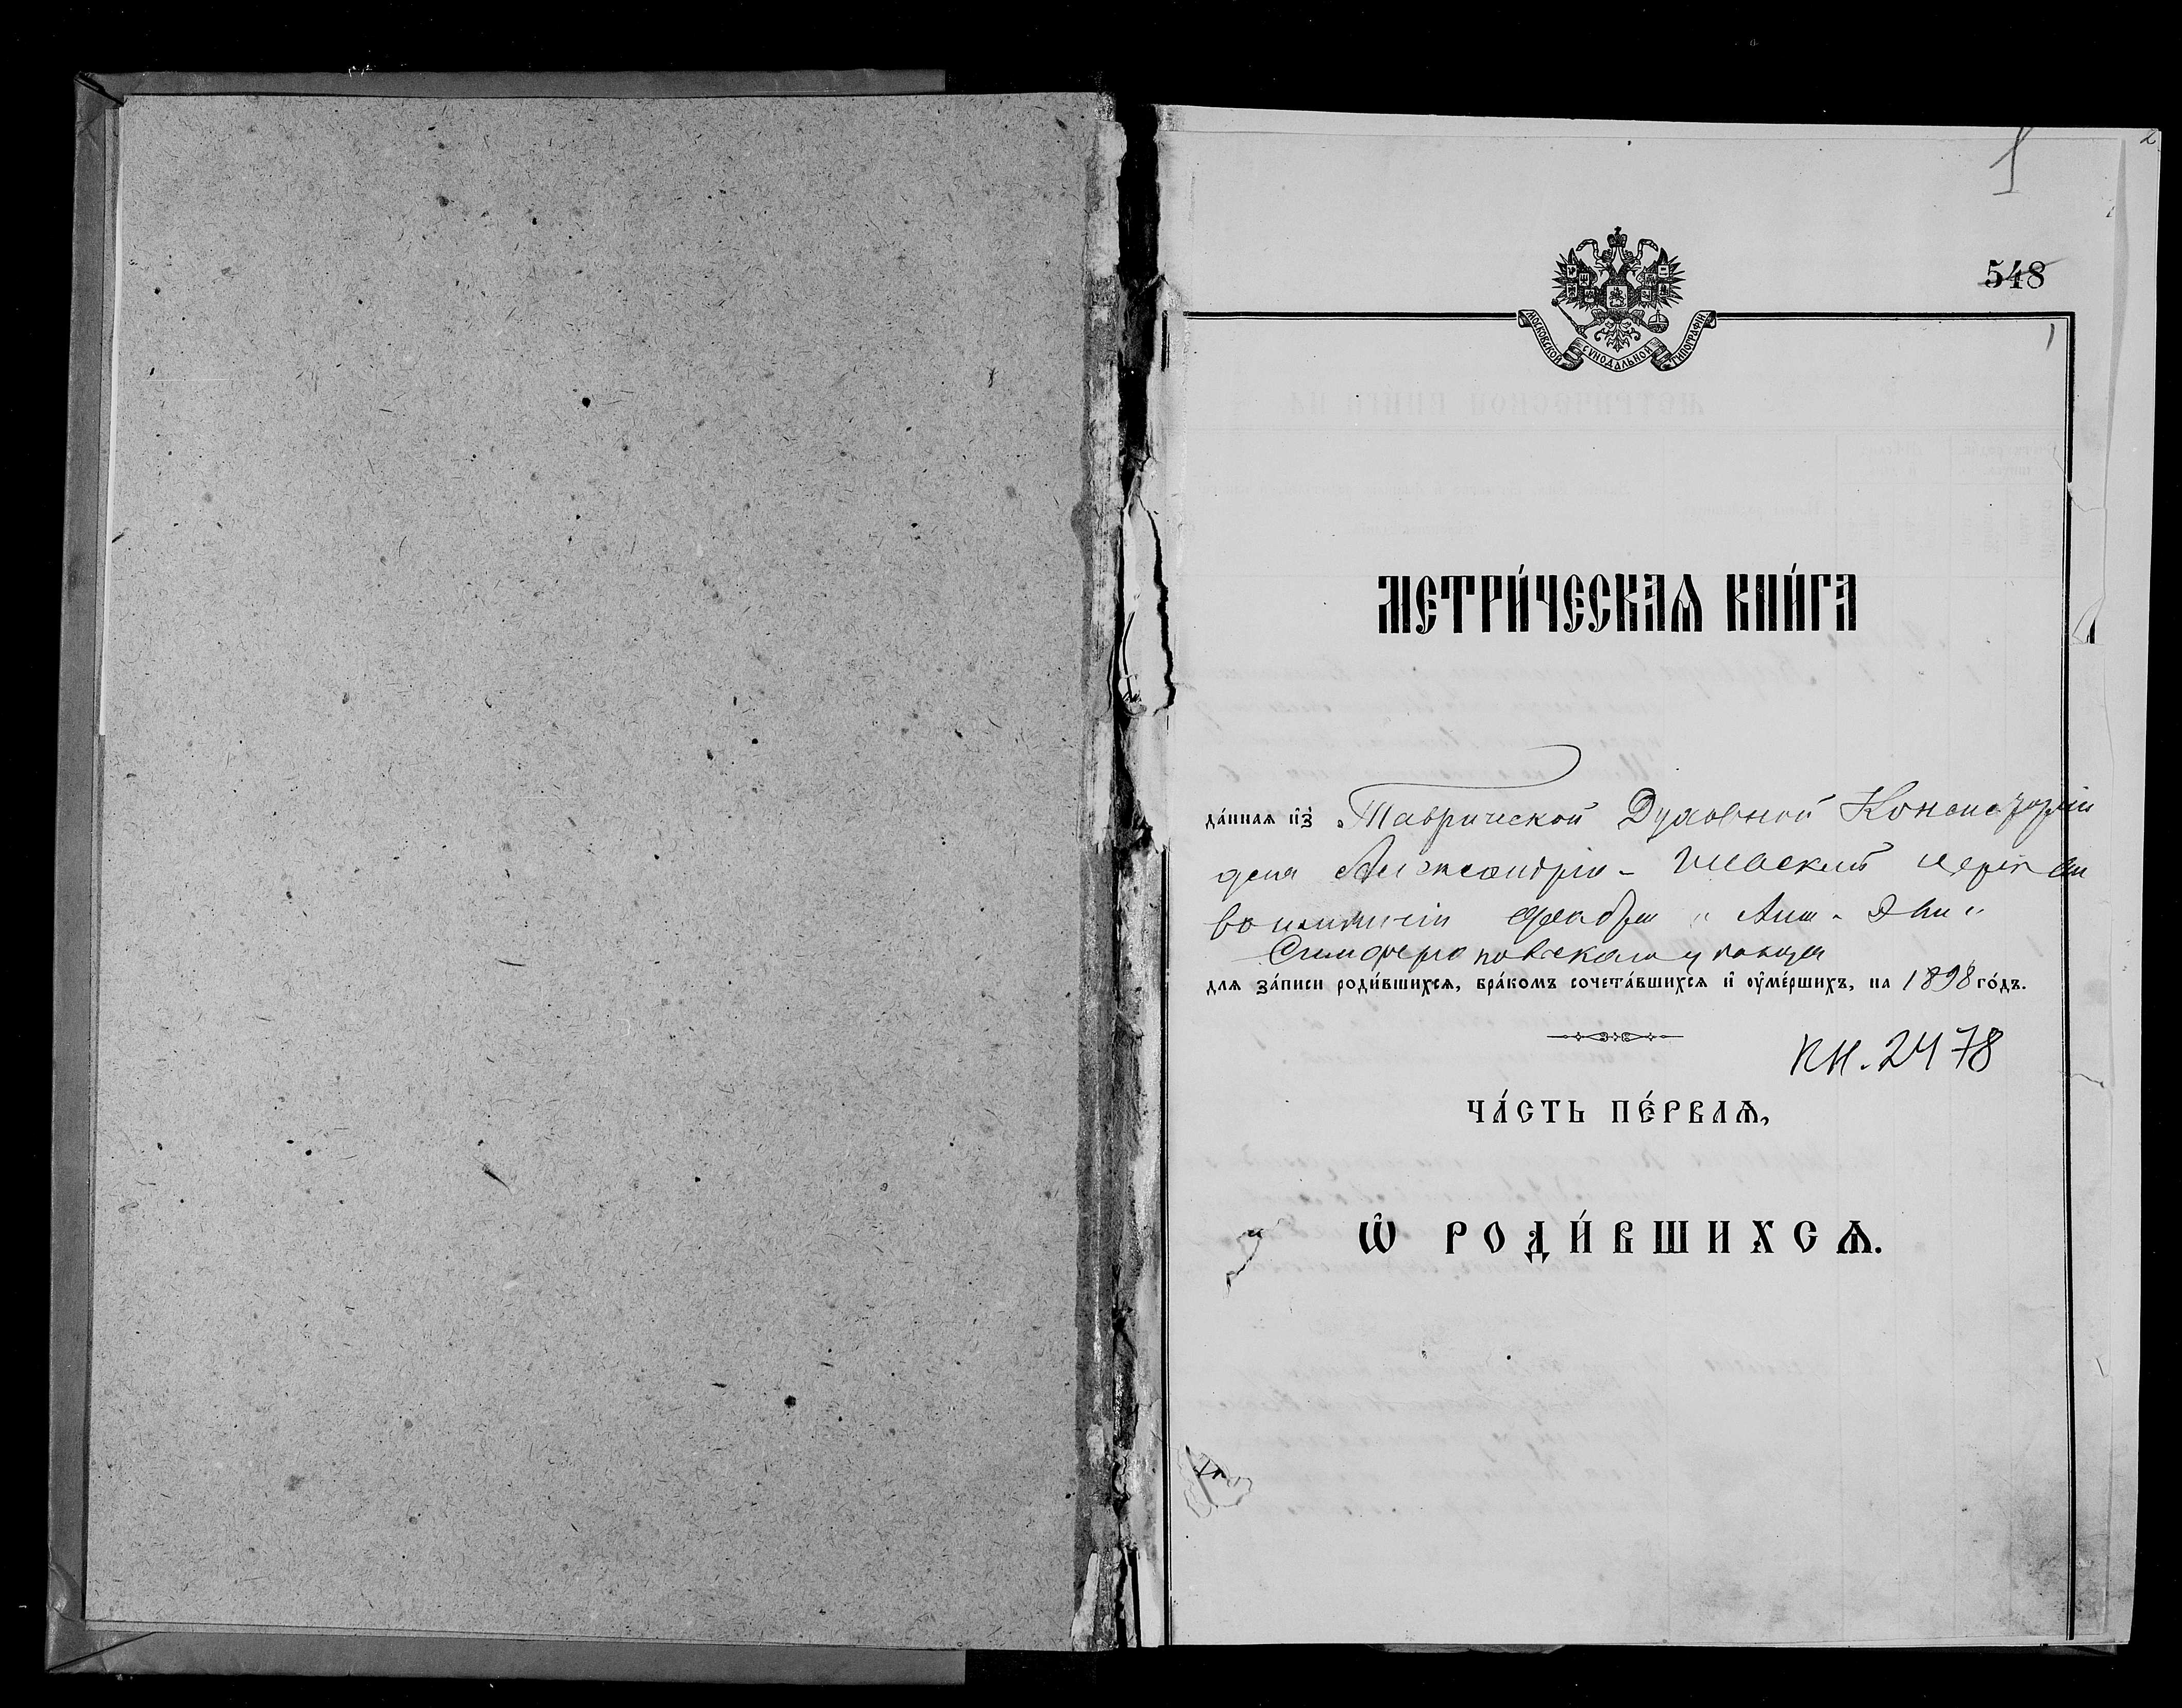 1
2
548
МОСКОВСКОЙ СѴНОДАЛЬНОЙ ТИПОГРАФІИ
1
МЕТРИ́ЧЕСКАѦ КНИ́ГА
да́ннаѧ и҆з̾ Таврической Духовной Консисторіи
для Александро-Невской церкви
селеніи
Симферопольскаго уѣзда
длѧ за́писи роди́вшихсѧ, бра́комъ сочета́вшихсѧ и҆ ᲂу҆ме́ршихъ, на 1898 го́дъ.
кн. 2478
ЧА́СТЬ ПЕ́РВАѦ,
Ѽ РОДИ́ВШИХСѦ.